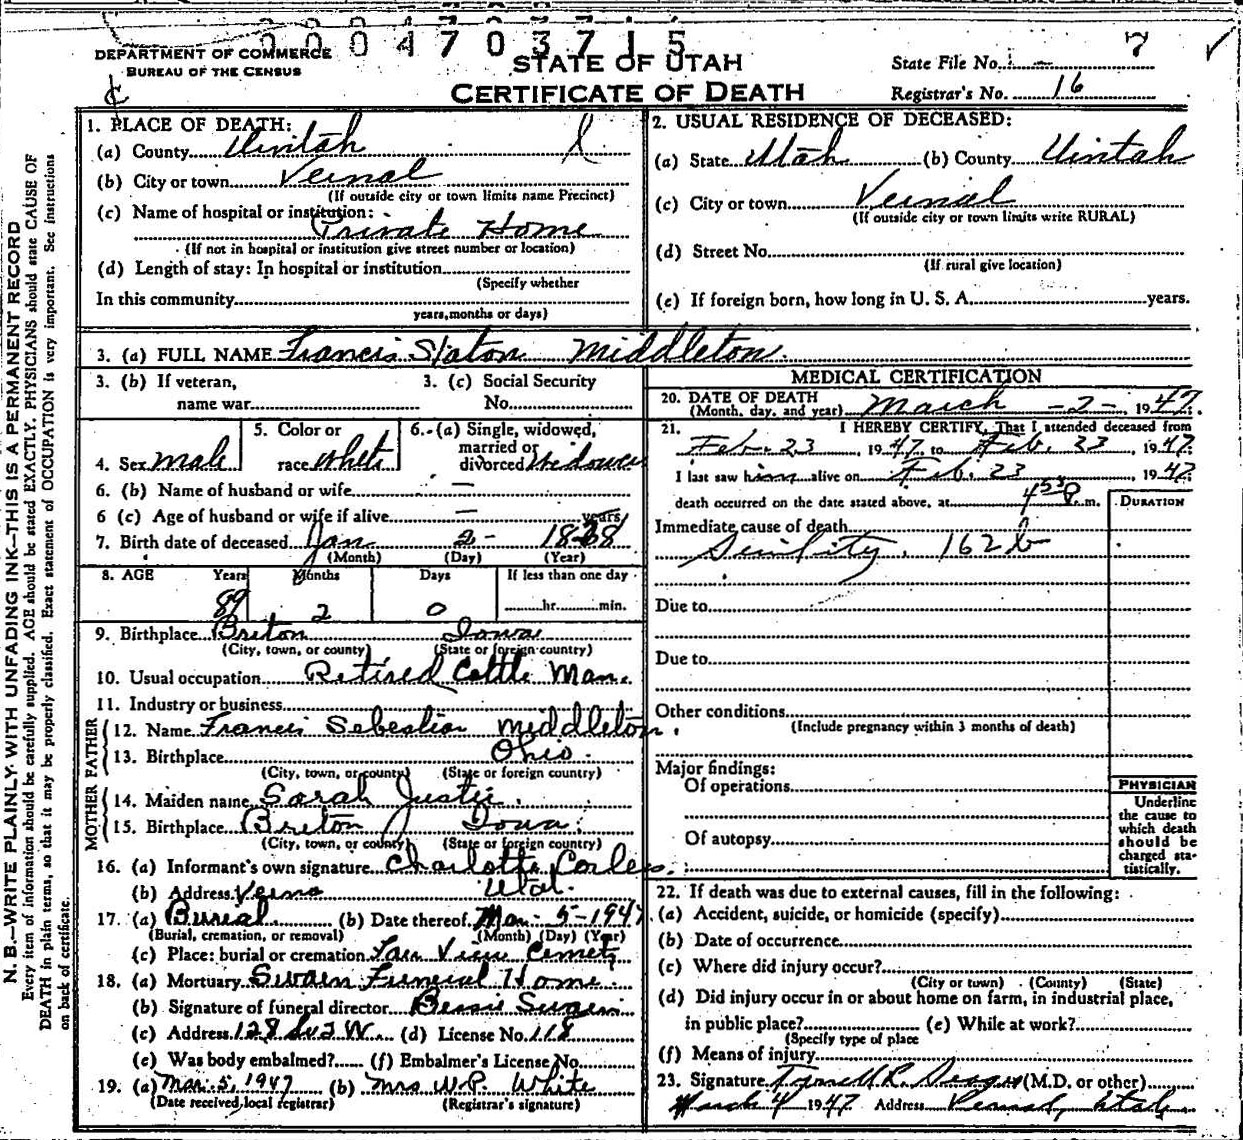 0 0 0 4 7 0 3 7 1 5
DEPARTMENT OF COMMERCE
BUREAU OF THE CENSUS
STATE OF UTAH
CERTIFICATE OF DEATH
State File No. 7
Registrar's No. 16
N. B.—WRITE PLAINLY WITH UNFADING INK—THIS IS A PERMANENT RECORD
Every item of information should be carefully supplied. AGE should be stated EXACTLY. PHYSICIANS should state CAUSE OF
DEATH in plain terms, so that it may be properly classified. Exact statement of OCCUPATION is very important. See instructions
on back of certificate.
1. PLACE OF DEATH:
(a) County Uintah
(b) City or town Vernal
(If outside city or town limits name Precinct)
(c) Name of hospital or institution:
Private Home
(If not in hospital or institution give street number or location)
(d) Length of stay: In hospital or institution
(Specify whether
In this community
years, months or days)
2. USUAL RESIDENCE OF DECEASED:
(a) State Utah (b) County Uintah
(c) City or town Vernal
(If outside city or town limits write RURAL)
(d) Street No.
(If rural give location)
(e) If foreign born, how long in U. S. A. years.
3. (a) FULL NAME Francis Slaton Middleton
3. (b) If veteran,
name war
3. (c) Social Security
No.
4. Sex male
5. Color or
race white
6. (a) Single, widowed,
married or
divorced Widower
6. (b) Name of husband or wife —
6 (c) Age of husband or wife if alive — years
7. Birth date of deceased Jan 2 - 18
(Month) (Day) (Year)
8. AGE Years Months Days If less than one day
89 2 0 hr. min.
9. Birthplace Briton Iowa
(City, town, or county) (State or foreign country)
10. Usual occupation Retired Cattle Man
11. Industry or business
FATHER
12. Name Francis Sebestian Middleton
13. Birthplace Ohio
(City, town, or county) (State or foreign country)
MOTHER
14. Maiden name Sarah Justic
15. Birthplace Breton Iowa
(City, town, or county) (State or foreign country)
16. (a) Informant's own signature Charlotte
(b) Address Utah
17. (a) Burial (b) Date thereof Mar - 5 - 1947
(Burial, cremation, or removal) (Month) (Day) (Year)
(c) Place: burial or cremation View
18. (a) Mortuary Swain Funeral Home
(b) Signature of funeral director Bessie Swain
(c) Address 128 W (d) License No. 118
(e) Was body embalmed? (f) Embalmer's License No.
19. (a) Mar. 5, 1947 (b) Mrs W.P. White
(Date received local registrar) (Registrar's signature)
MEDICAL CERTIFICATION
20. DATE OF DEATH
(Month, day, and year) March -2-, 1947
21. I HEREBY CERTIFY, That I attended deceased from
Feb. 23, 1947 to Feb. 23, 1947
I last saw him alive on Feb. 23 1947
death occurred on the date stated above, at 4 P.m.
DURATION
Immediate cause of death
162 b
Due to
Due to
Other conditions
(Include pregnancy within 3 months of death)
Major findings:
Of operations
Of autopsy
PHYSICIAN
Underline
the cause to
which death
should be
charged sta-
tistically.
22. If death was due to external causes, fill in the following:
(a) Accident, suicide, or homicide (specify)
(b) Date of occurrence
(c) Where did injury occur?
(City or town) (County) (State)
(d) Did injury occur in or about home on farm, in industrial place,
in public place? (e) While at work?
(Specify type of place
(f) Means of injury
23. Signature (M.D. or other)
March 4 1947 Address Vernal, Utah